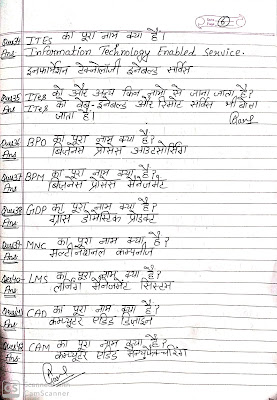 6
Que34 ITES का पूरा नाम क्या है।
Ans Information Technology Enabled Service.
इनफार्मेशन टेक्नोलॉजी इनेबल्ड सर्विस
Que35 ITES को और अन्य किन नामों से जाना जाता है?
Ans ITES को वेब-इनेबल्ड और रिमोट सर्विस भी बोला
जाता है।
Que36 BPO का पूरा नाम क्या है?
Ans बिज़नेस प्रोसेस आउटसोर्सिंग
Que37 BPM का पूरा नाम क्या है?
Ans बिज़नेस प्रोसेस मैनेजमेंट
Que38 GDP का पूरा नाम क्या है?
Ans ग्रोस डोमेस्टिक प्रोडक्ट
Que39 MNC का पूरा नाम क्या है?
Ans मल्टीनेशनल कम्पनीज
Que40 LMS का पूरा नाम क्या है?
Ans लर्निंग मैनेजमेंट सिस्टम
Que41 CAD का पूरा नाम क्या है?
Ans कम्प्यूटर एडिड डिज़ाइन
Que42 CAM का पूरा नाम क्या है?
Ans कम्प्यूटर एडिड मैन्युफैक्चरिंग
CS CamScanner